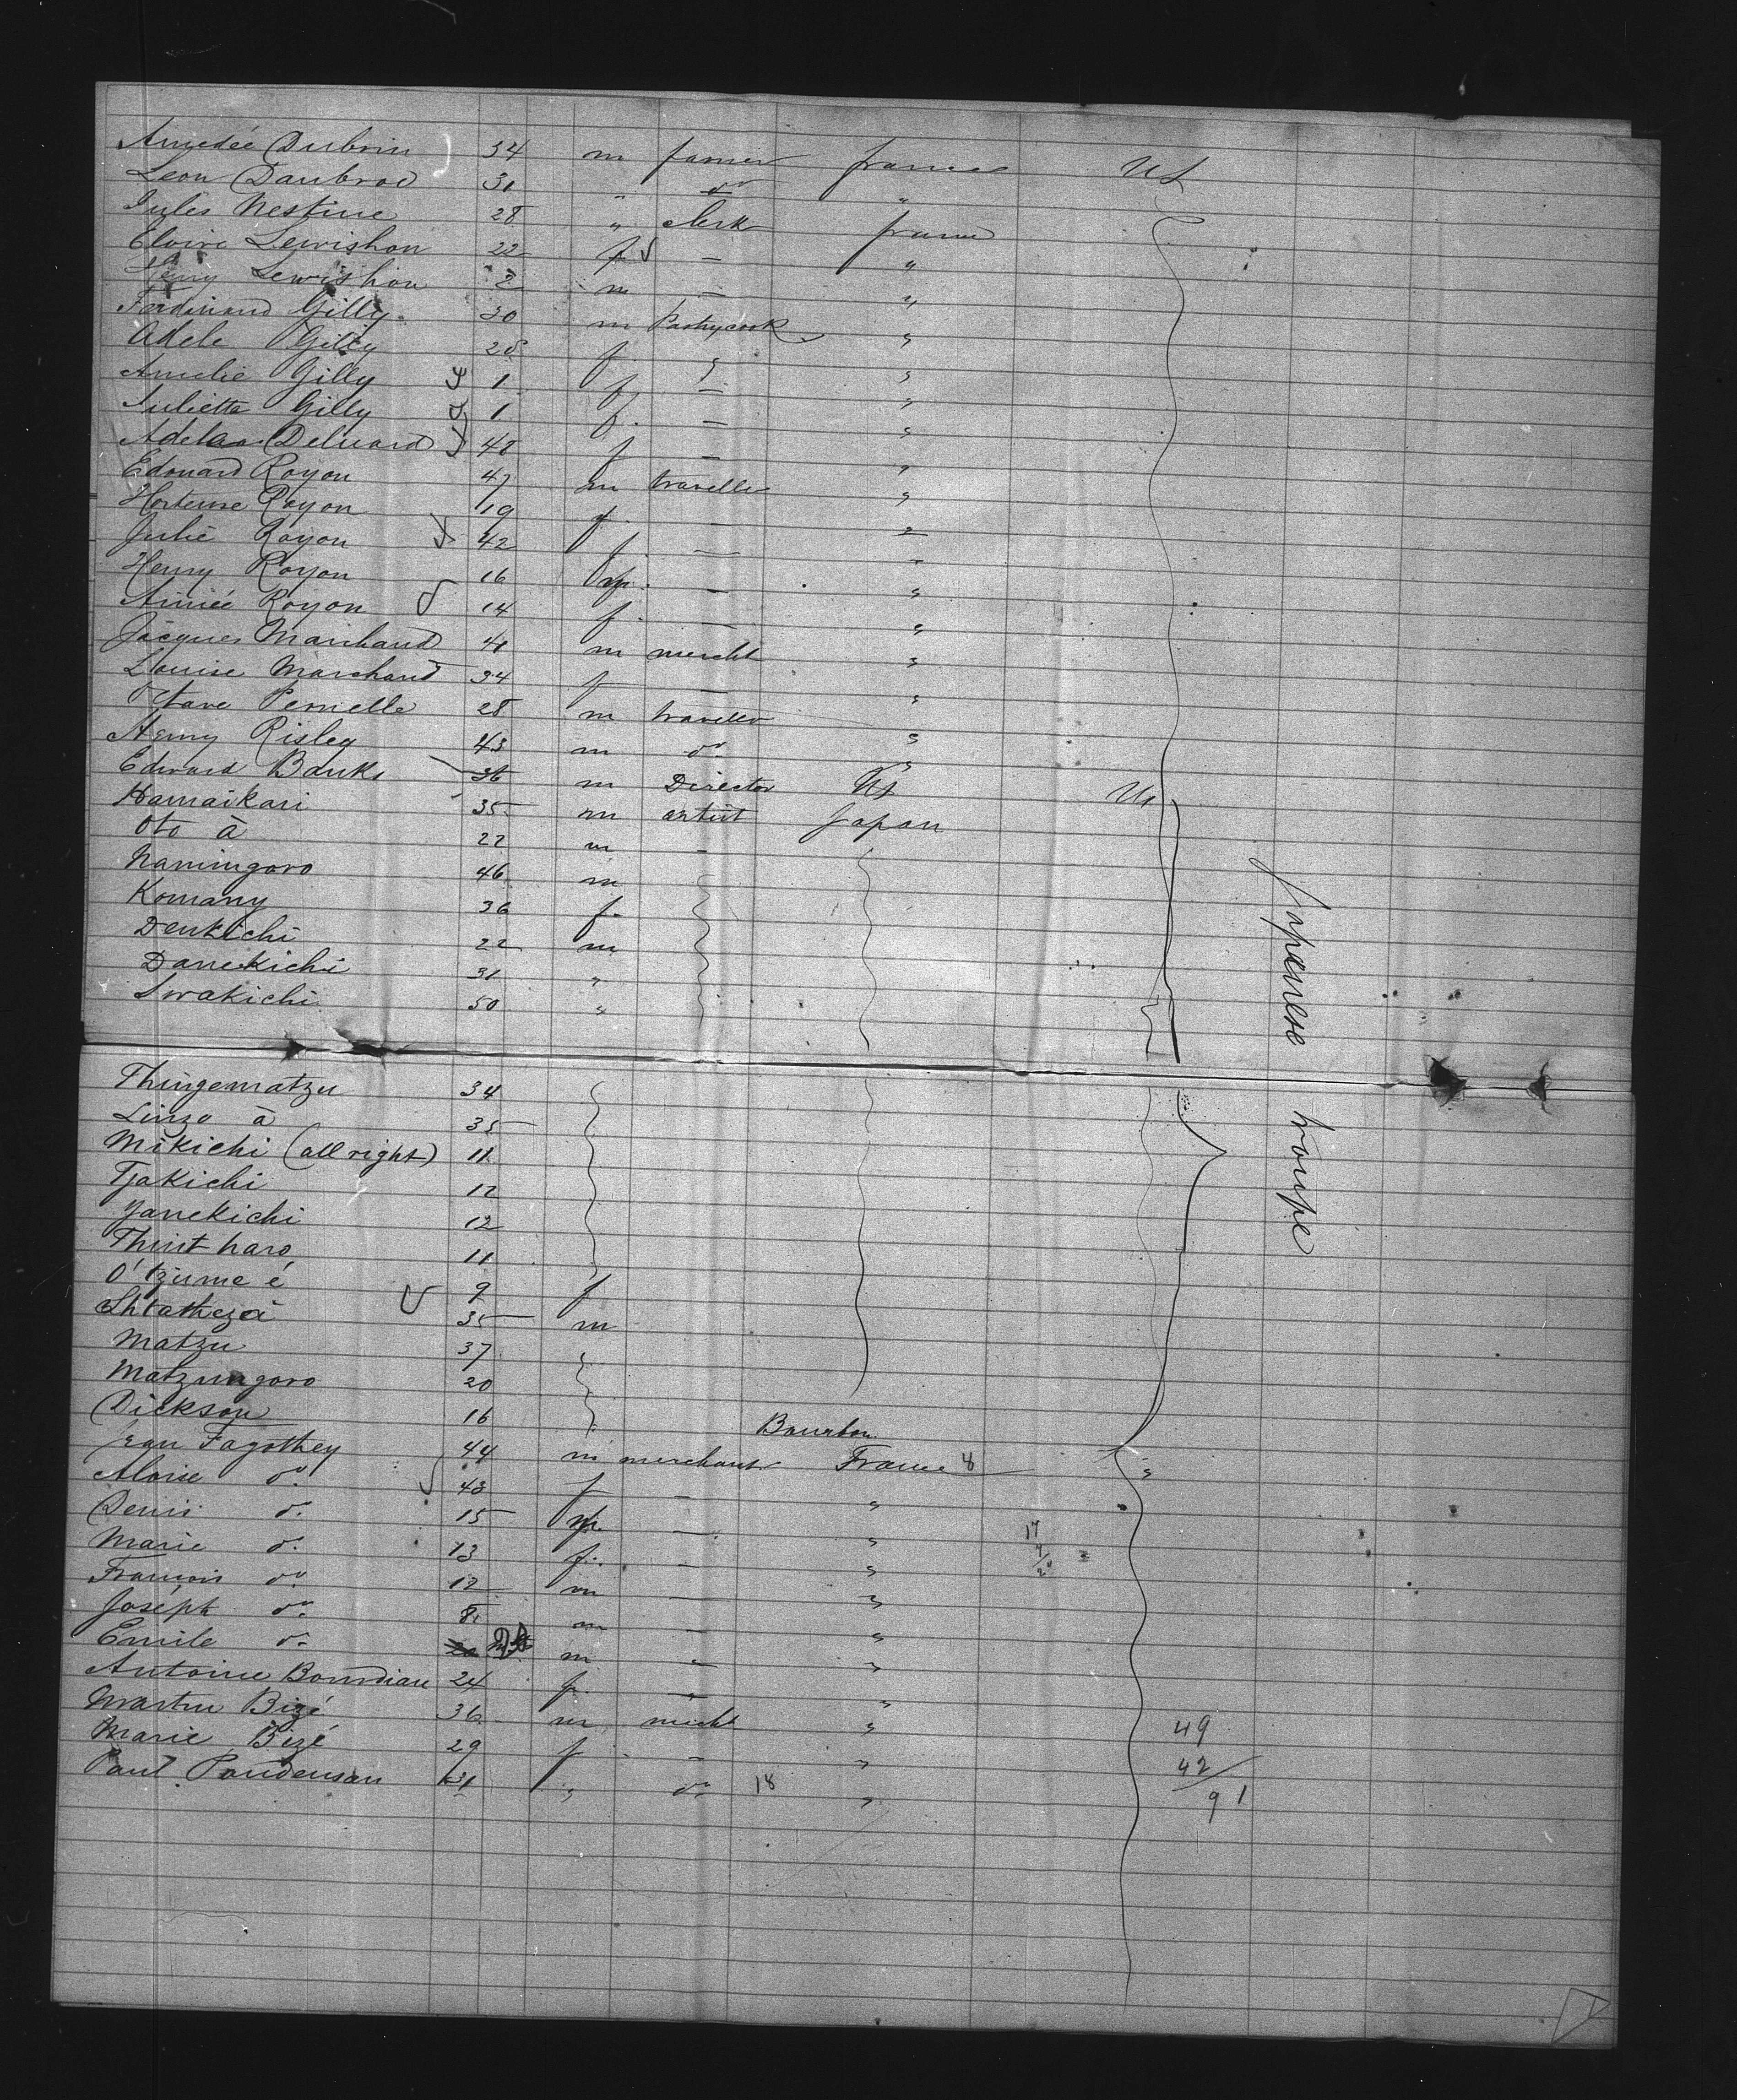 Amedée Dubrin 34 m farmer france US
Leon Daubroe 31 " do "
Jules Nestine 28 " Clerk france
Eloire Lewishon 22 f — "
Henry Lewishon 2 m — "
Ferdinand Gilly 30 m Pastrycook "
Adele Gilly 28 f "
Amelie Gilly 1 f — "
Juliette Gilly 1 f. — "
Adelaa Deluard 48 f — "
Edouard Royon 47 m traveller "
Hortense Royon 19 f. — "
Julie Royon 42 f. — "
Henry Royon 16 m. — "
Aimée Royon 14 f. — "
Jacques Marchand 41 m mercht "
Louise Marchand 34 f — "
Octave Pernelle 28 m traveller "
Henry Risley 43 m do "
Edward Banks 36 m Director US
Hamaikari 35 m artist Japan Us
Oto à 22 m -
Namingoro 46 m
Komany 36 f.
Denkichi 22 m
Danekichi 31 "
Iwakichi 50 "
Japanese troupe
Thingematzu 34
Linzo à 35
Mikichi (all right) 11
Tjakichi 12
Yanekichi 12
Thint haro 11
O'tzume é 9 f
Shtatheza 35 m
Matzu 37
Matzungoro 20
Dickson 16
Bourbon
Jean Fagothey 44 m merchant France 8 "
Aloise do 43 f — "
Denis do. 15 m. — "
Marie do. 13 f. — "
Francois do. 12 m — "
Joseph do. 8 m — "
Emile do m — "
Antoine Bourdiau 24 f. — "
Martin Bizé 36 m mercht "
Marie Bizé 29 f — "
Paul Paudensan 31 " do 18 "
17
49
42
91